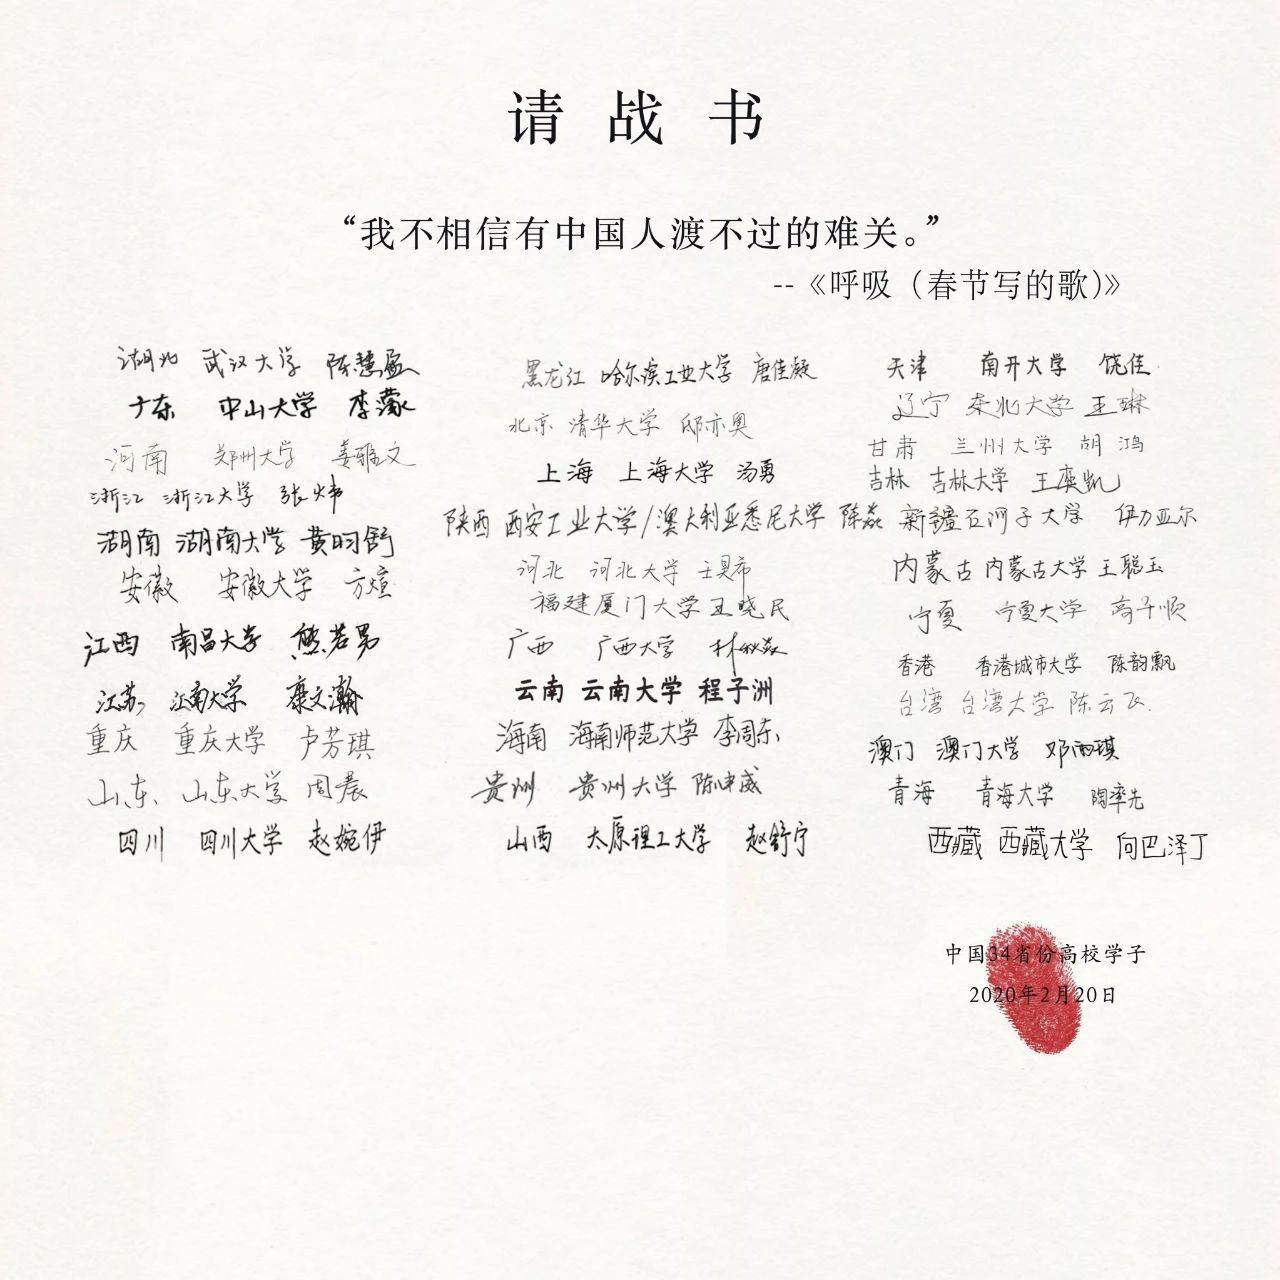 请战书
“我不相信有中国人渡不过的难关。”
--《呼吸（春节写的歌）》
湖北 武汉大学 陈慧盈
广东 中山大学 李濛
河南 郑州大学 姜雅文
浙江 浙江大学 张炜
湖南 湖南大学 黄昀舒
安徽 安徽大学 方煊
江西 南昌大学 熊若男
江苏 江南大学 康文瀚
重庆 重庆大学 卢芳琪
山东 山东大学 周晨
四川 四川大学 赵婉伊
黑龙江 哈尔滨工业大学 唐佳凝
北京 清华大学 邸亦奥
上海 上海大学 汤勇
陕西 西安工业大学/澳大利亚悉尼大学 陈焱
河北 河北大学
福建 厦门大学 王晓民
广西 广西大学
云南 云南大学 程子洲
海南 海南师范大学 李周东
贵州 贵州大学 陈申威
山西 太原理工大学 赵舒宁
天津 南开大学 饶佳
辽宁 东北大学 王琳
甘肃 兰州大学 胡鸿
吉林 吉林大学 王奕凯
新疆 石河子大学 伊力亚尔
内蒙古 内蒙古大学 王聪玉
宁夏 宁夏大学 高子顺
香港 香港城市大学 陈韵飘
台湾 台湾大学 陈云飞
澳门 澳门大学 邓雨琪
青海 青海大学 陶率先
西藏 西藏大学 向巴泽丁
中国34省份高校学子
2020年2月20日